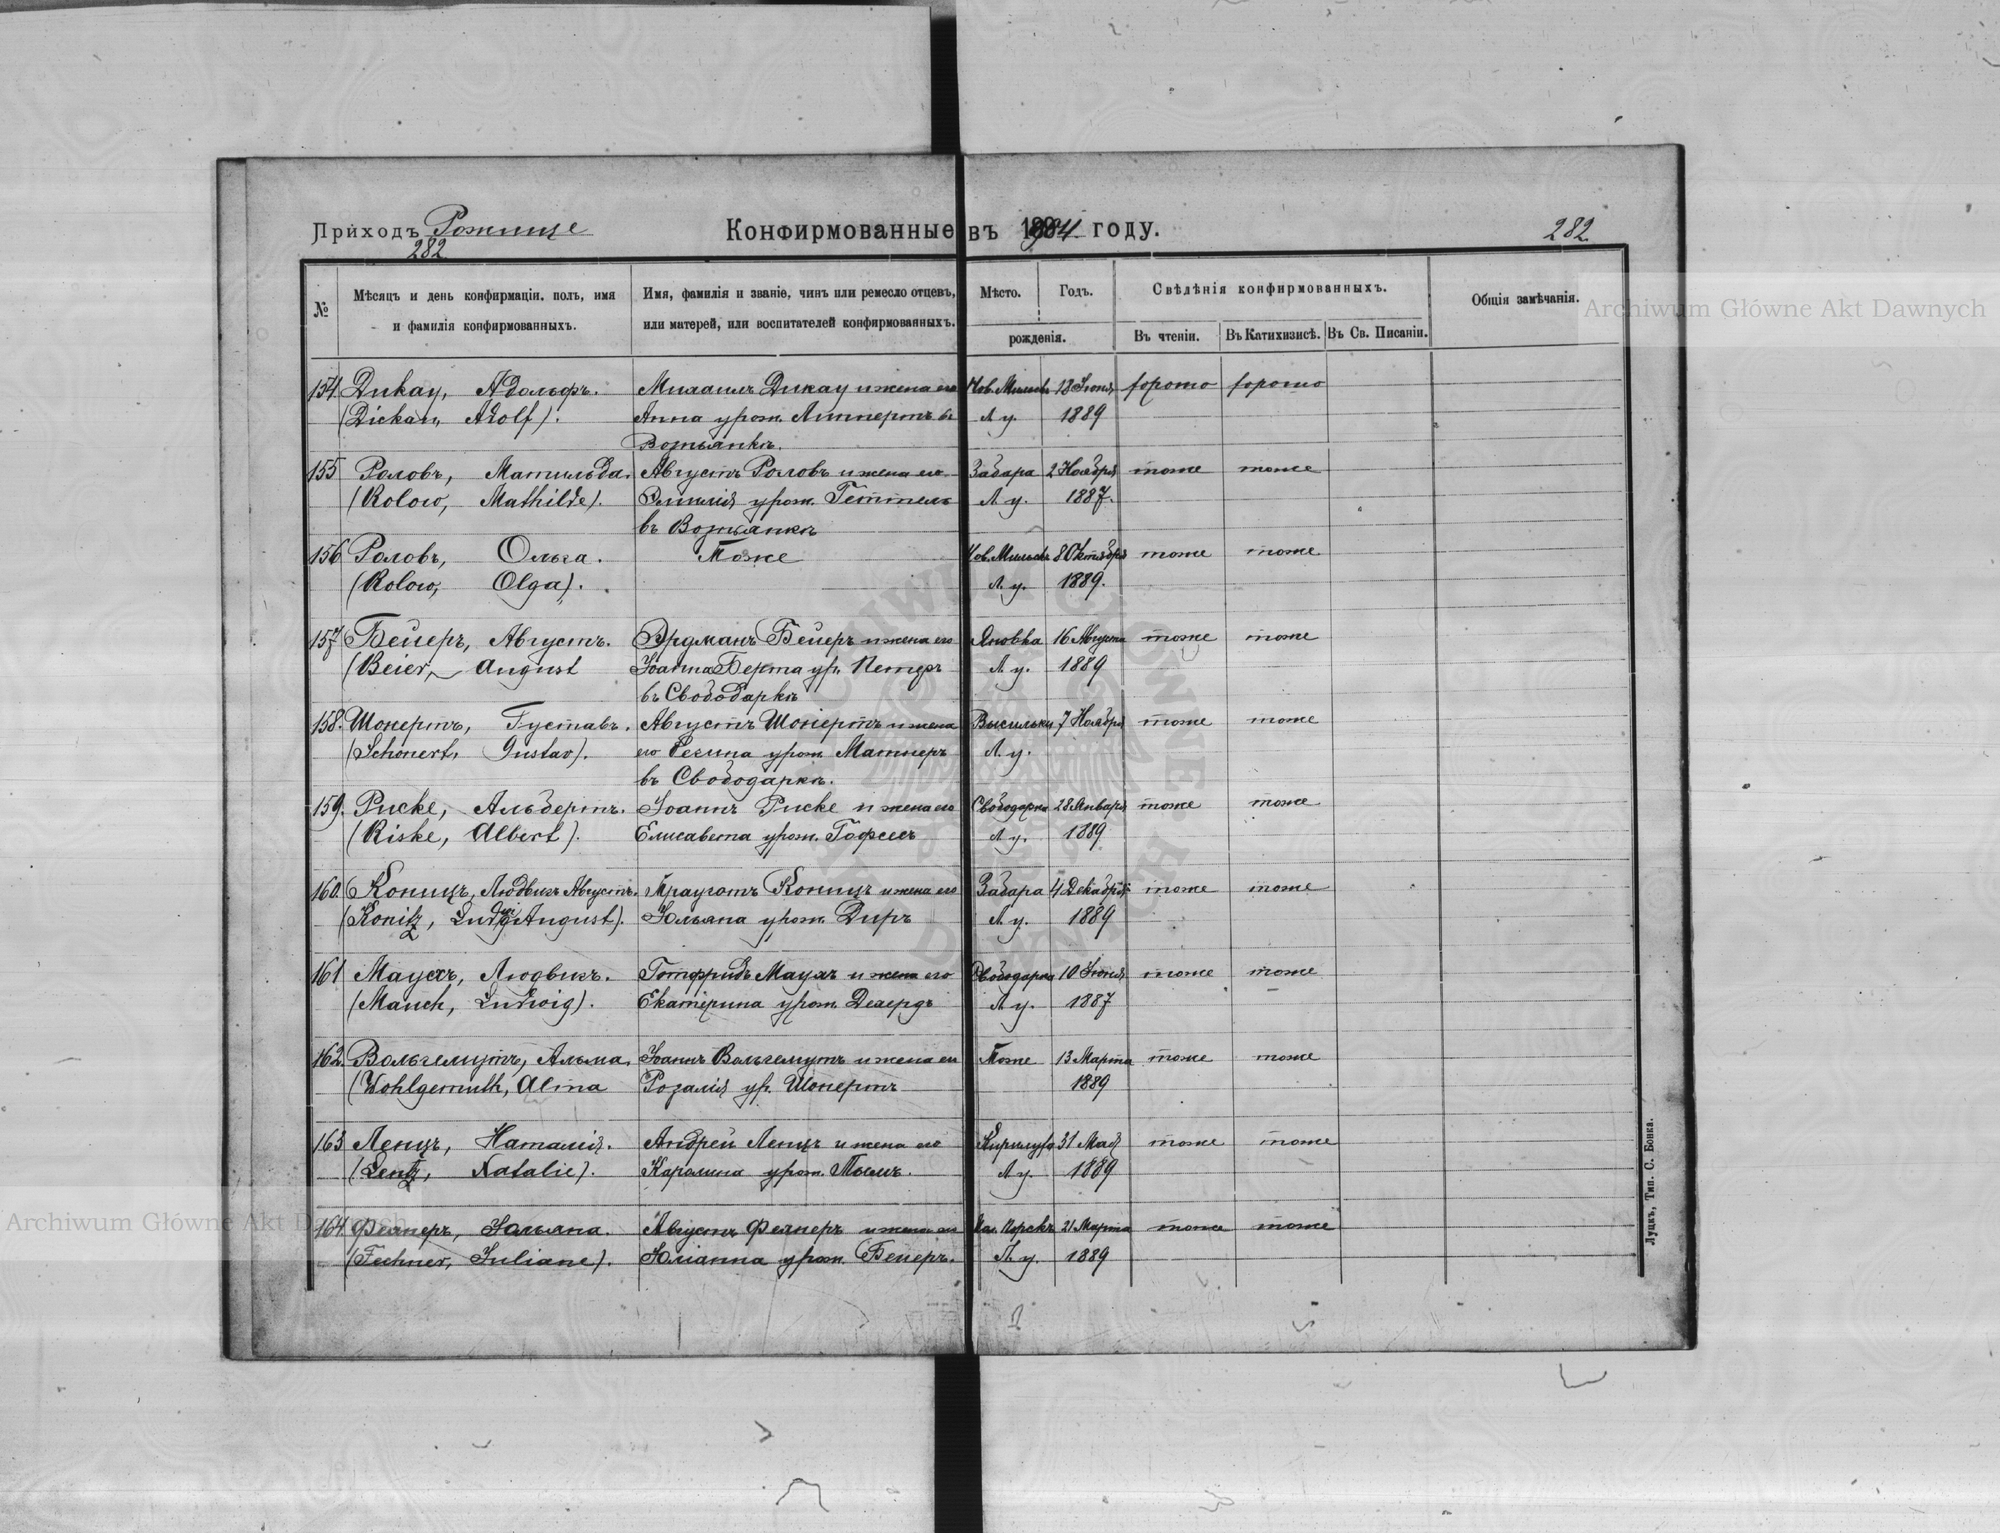 Приходъ Рожище
282
Конфирмованные въ 1904 году.
282
№
Мѣсяцъ и день конфирмаціи, полъ, имя
и фамилія конфирмованныхъ.
Имя, фамилія и званіе, чинъ или ремесло отцевъ,
или матерей, или воспитателей конфирмованныхъ.
Мѣсто.
Годъ.
рожденія.
Свѣдѣнія конфирмованныхъ.
Въ чтеніи.
Въ Катихизисѣ.
Въ Св. Писаніи.
Общія замѣчанія.
154. Дикау, Адольфъ. Михаилъ Дикау и жена его Нов. 12 Іюня хорошо хорошо
(Dickau, Adolf). Анна урож. Липпертъ въ Л. у. 1889
Вожьянкѣ.
155 Роловъ, Матильда. Августъ Роловъ и жена его Забара 2 Ноября тоже тоже
(Rolow, Mathilde). Эмилія урож. Геттель Л. у. 1887.
въ Вожьянкѣ
156 Роловъ, Ольга. Тоже Нов. 8 Октября тоже тоже
(Rolow, Olga). Л. у. 1889.
157 Бейеръ, Августъ. Эрдманъ Бейеръ и жена его Яновка 16 Августа тоже тоже
(Beier, August Іоанна Берта ур. Петеръ Л. у. 1889
въ Свободаркѣ
158. Шонертъ, Густавъ. Августъ Шонертъ и жена 7 Ноября тоже тоже
(Schonert, Gustav). его Регина урож. Матнеръ Л. у.
въ Свободаркѣ.
159. Риске, Альбертъ. Іоаннъ Риске и жена его Свободарка 28 Января тоже тоже
(Riske, Albert). Елисавета урож. Л. у. 1889
160. Коницъ, Людвигъ Августъ. Трауготъ Коницъ и жена его Забара 4 Декабря тоже тоже
(Konitz, Ludwig August). Юльяна урож. Диръ Л. у. 1889
161 Маухъ, Людвигъ. Готфридъ Маухъ и жена его Свободарка 10 Іюня тоже тоже
(Mauch, Ludwig). Екатерина урож. Л. у. 1887
162. Вольгемутъ, Альма. Іоаннъ Вольгемутъ и жена его Тоже 13 Марта тоже тоже
(Wohlgemuth, Alma Розалія ур. Шонертъ 1889
163 Ленцъ, Наталія. Андрей Ленцъ и жена его 31 Мая тоже тоже
(Lentz, Natalie). Каролина урож. Тымъ. Л. у. 1889
164. Фехнеръ, Юльяна. Августъ Фехнеръ и жена его 21 Марта тоже тоже
(Fechner, Juliane). Юліанна урож. Бейеръ. Л. у. 1889
Луцкъ, Тип. С. Бонка.
Archiwum Główne Akt Dawnych
Archiwum Główne Akt Dawnych